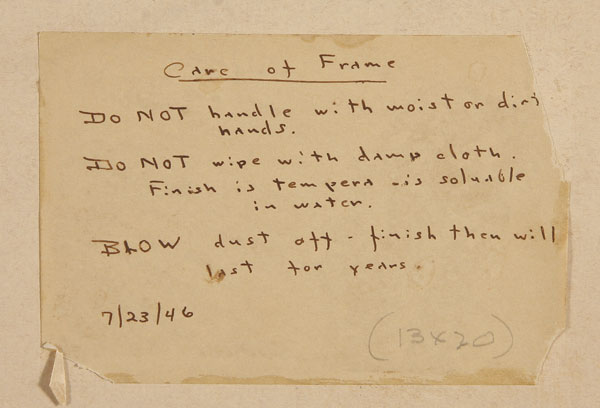 Care of Frame
DO NOT handle with moist or dirt
hands.
DO NOT wipe with damp cloth.
Finish is tempera - is soluable
in water.
BLOW dust off - finish then will
last for years.
7/23/46
(13x20)